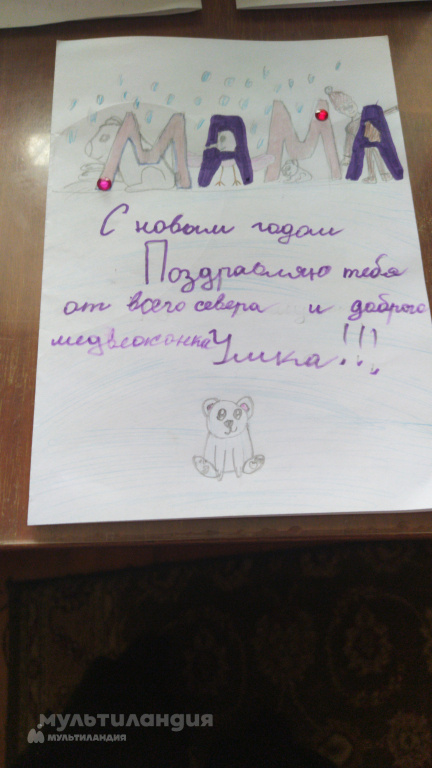 МАМА
С новым годом
Поздравляю тебя
от всего севера и доброго
медвежонка Умка!!!
мультиландия
мультиландия